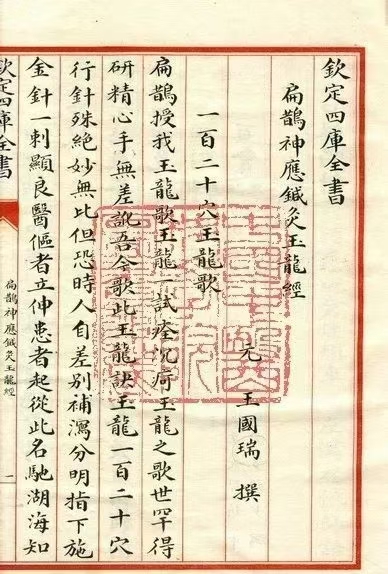 欽定四庫全書
扁鵲神應鍼灸玉龍經
元 王國瑞 撰
一百二十穴玉龍歌
扁鵲授我玉龍歌玉龍一試痊沉疴玉龍之歌世罕得
研精心手無差訛吾今歌此玉龍訣玉龍一百二十穴
行針殊絕妙無比但恐時人自差別補瀉分明指下施
金針一刺顯良醫傴者立伸患者起從此名馳湖海知
欽定四庫全書
扁鵲神應鍼灸玉龍經
一